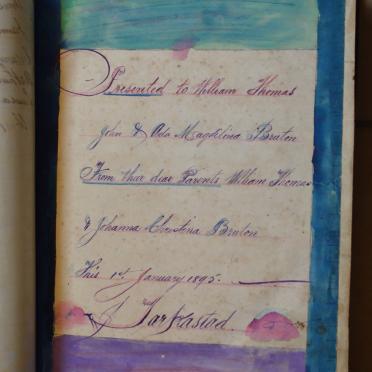 Presented to William Thomas
John & Oda Magdelina Bruton
From thier dear Parents William Thomas
& Johanna Christina Bruton
This 1st January 1895.
Tarkastad